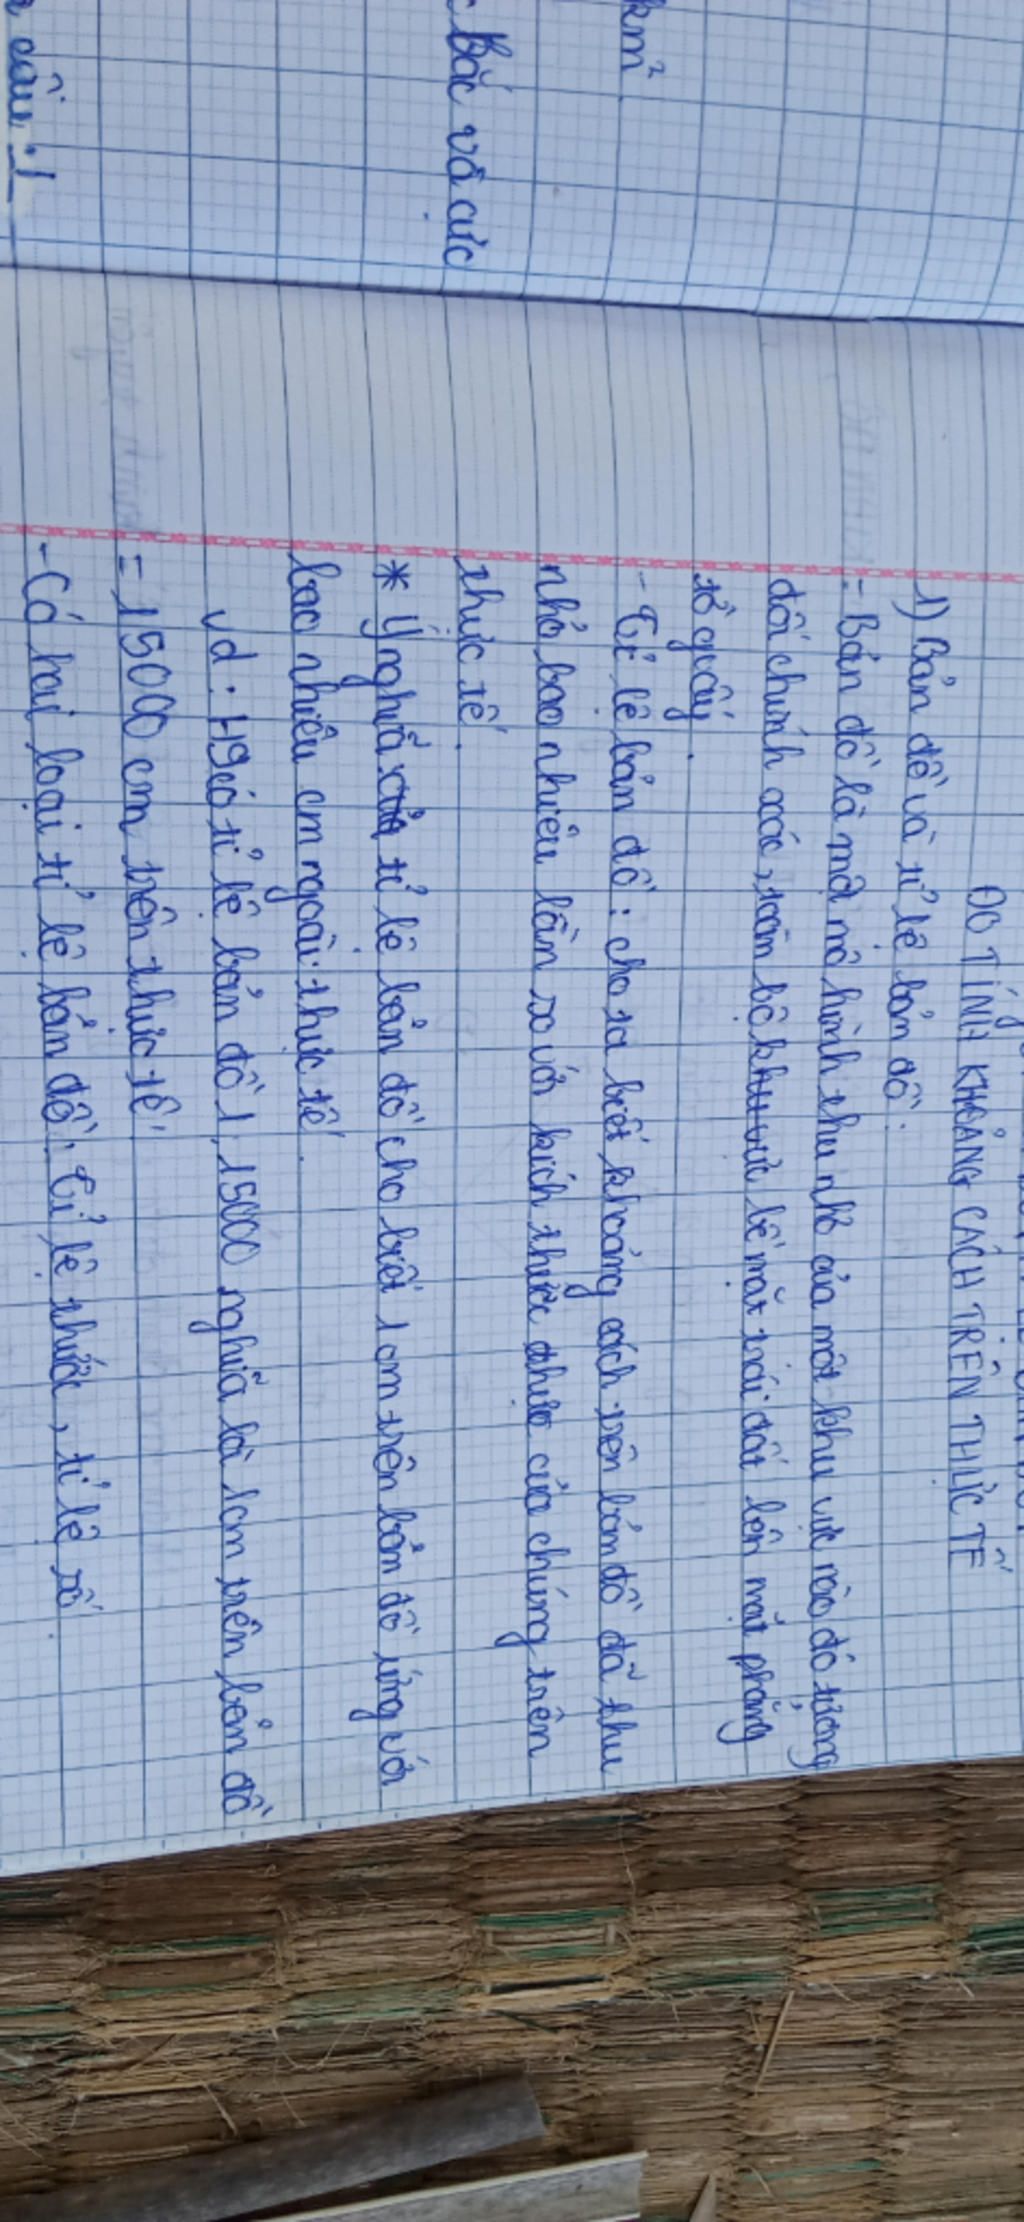 km²
Bắc và cực
câu :1
ĐO TÍNH KHOẢNG CÁCH TRÊN THỰC TẾ
1) Bản đồ và tỉ lệ bản đồ:
- Bản đồ là một mô hình thu nhỏ của một khu vực nào đó tương
đối chính xác, toàn bộ khu vực bề mặt trái đất lên mặt phẳng
tờ giấy.
- Tỉ lệ bản đồ: cho ta biết khoảng cách trên bản đồ đã thu
nhỏ bao nhiêu lần so với kích thước thực của chúng trên
thực tế.
* Ý nghĩa của tỉ lệ bản đồ cho biết 1cm trên bản đồ ứng với
bao nhiêu cm ngoài thực tế.
vd: H9có tỉ lệ bản đồ 1, 15000 nghĩa là 1cm trên bản đồ
= 15000 cm trên thực tế
- Có hai loại tỉ lệ bản đồ: Tỉ lệ thước, tỉ lệ số.